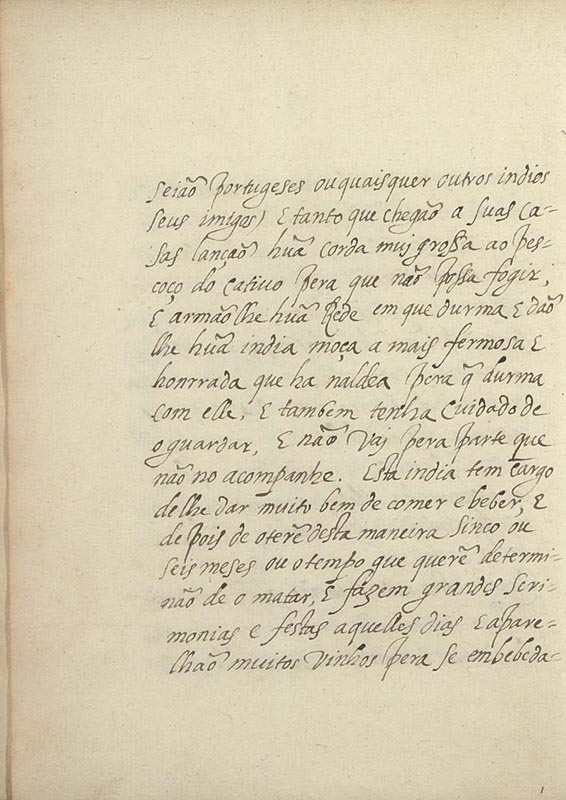 seião portugeses ou quaisquer outros indios
seus imigos) E tanto que chegão a suas ca-
sas lanção hũa corda muj grossa ao pes-
coço do cativo pera que não possa fogir,
E armãolhe hũa Rede em que durma E dão
lhe hũa india moça a mais fermosa E
honrrada que ha naldea pera q̃ durma
com elle, E tambem tenha cuidado de
o guardar, E não vaj pera parte que
não no acompanhe. Esta india tem cargo
de lhe dar muito bem de comer e beber, E
de pois de o terẽ desta maneira sinco ou
seis meses ou o tempo que querẽ determi-
não de o matar, E fazem grandes seri-
monias e festas aquelles dias E apare-
lhão muitos vinhos pera se embebeda-